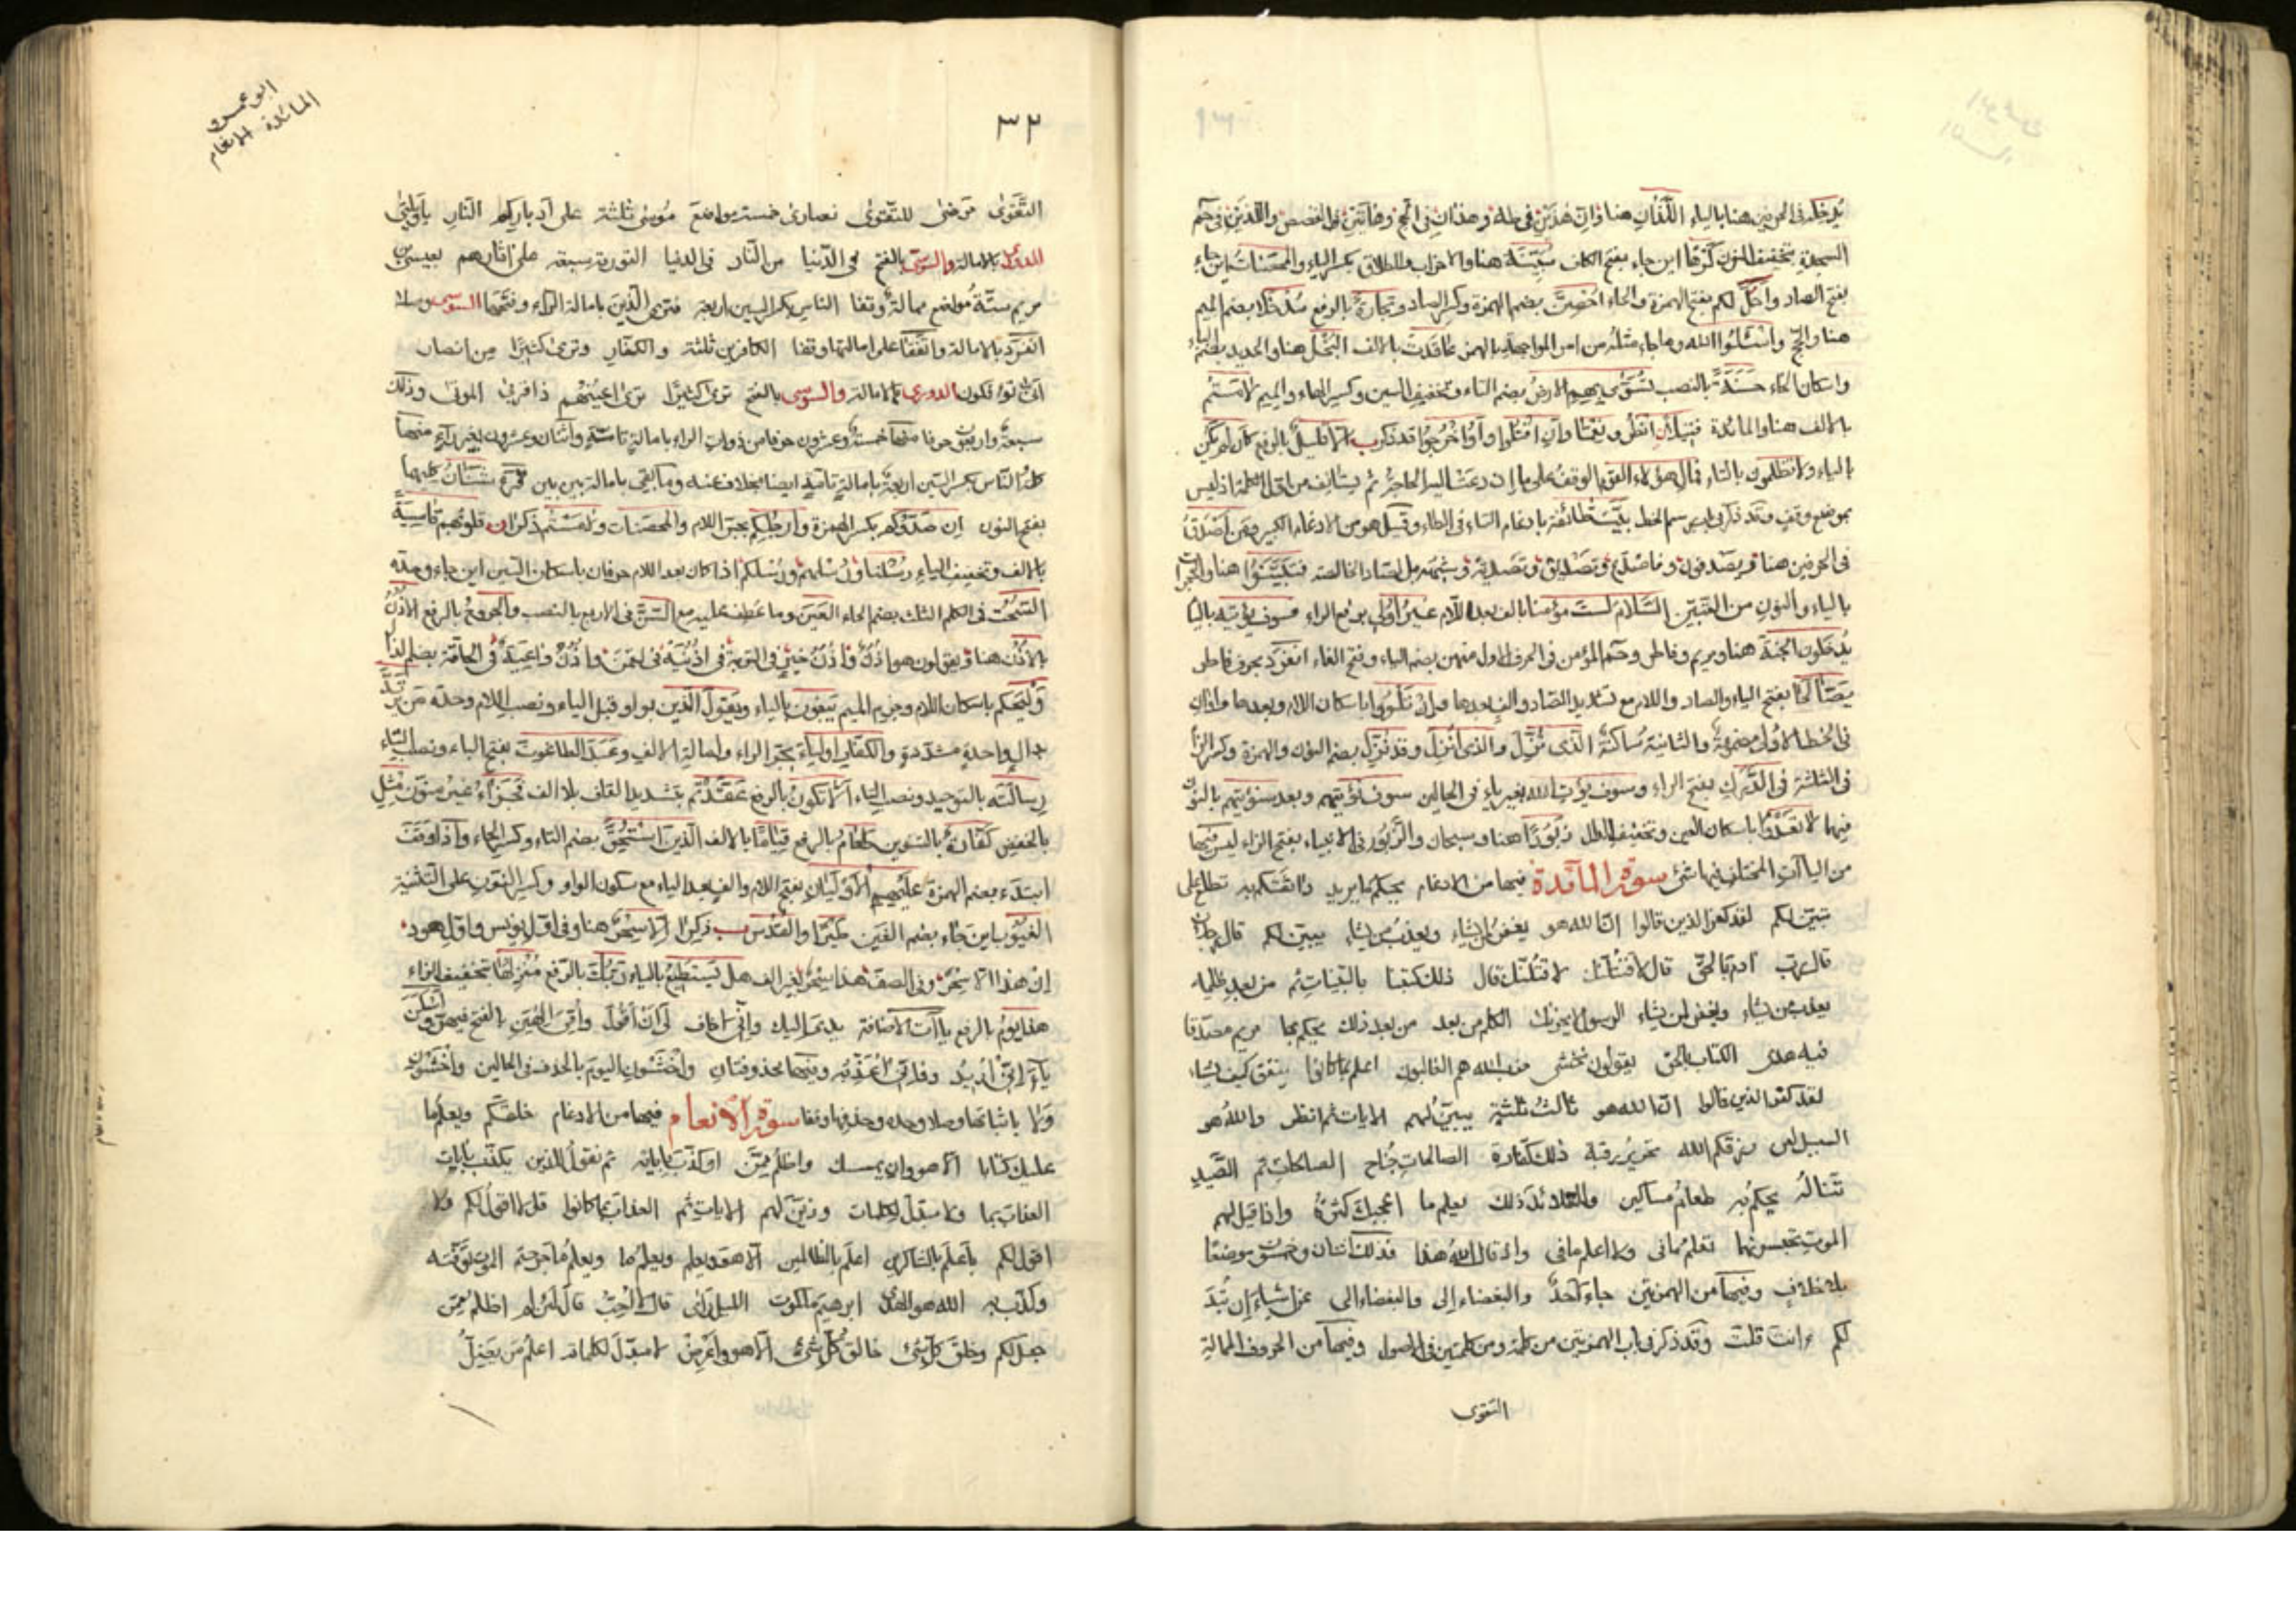 يدخله في الحرفين هنا بالياء اللذان هنا وان هذين في طه وهذان في الحج وهاتين في القصص واللذين في حم
السجدة بتخفيف النون كرها اين جاء بفتح الكاف مبينة هنا والاحزاب والطلاق بكسر الياء والمحصنات اين جاء
بفتح الصاد واحل لكم بفتح الهمزة والحاء احصن بضم الهمزة وكسر الصاد وتجارة بالرفع مدخلا بضم الميم
هنا والحج واسئلوا الله وما جاء مثله من امر المواجهة بالهمز عاقدت بالالف البخل هنا والحديد بضم الباء
واسكان الخاء حسنة بالنصب تسوى بهم الارض بضم التاء وتخفيف السين وكسر الهاء والميم لامستم
بالالف هنا والمائدة فتيلا انظر ونعما وان اقتلوا او اخرجوا قد ذكر الا قليل بالرفع كان لم يكن
بالياء ولا تظلمون بالتاء فمال هؤلاء القوم الوقف على ما ان دعت اليه الحاجة ثم يستأنف من اول الكلمة اذ ليس
بموضع وقف وقد ذكر في باب مرسوم الخط بيت طائفة بادغام التاء في الطاء وقيل هو من الادغام الكبير ومن اصدق
في الحرفين هنا ويصدفون وفاصدع وتصديق وتصدية وشبهه بالصاد الخالصة فتبينوا هنا والحجرات
بالياء والنون من التبين السلام لست مؤمنا بالف بعد اللام غير اولي برفع الراء فسوف يؤتيه بالياء
يدخلون الجنة هنا ومريم وفاطر وحم المؤمن في الحرف الاول منهن بضم الياء وفتح الخاء انفرد بحرف فاطر
يصالحا بفتح الياء والصاد واللام مع تشديد الصاد والف بعدها وان تلووا باسكان اللام وبعدها واوان
في الخط الاولى مضمومة والثانية ساكنة الذي نزل والذي انزل وقد نزل بضم النون والهمزة وكسر الزاء
في الثلثة في الدرك بفتح الراء وسوف يؤت الله بغير ياء في الحالين سوف نؤتيهم وبعد سنؤتيهم بالنون
فيهما لا تعدوا باسكان العين وتخفيف الدال زبورا هنا وسبحان والزبور في الانبياء بفتح الزاء ليس فيها
من الياآت المختلف فيها شئ سورة المائدة فيها من الادغام يحكم ما يريد واثقكم به تطلع على
يبين لكم لقد كفر الذين قالوا ان الله هو يغفر لمن يشاء ويعذب من يشاء يبين لكم قال رجلان
قال رب ادم بالحق قال لاقتلنك لاقتلنك قال ذلك كتبنا بالبينات ثم من بعد ظلمه
يعذب من يشاء ويغفر لمن يشاء الرسول لا يحزنك الكلم من بعد من بعد ذلك يحكم بها مريم مصدقا
فيه هدى الكتاب بالحق يقولون نخشى حزب الله هم الغالبون اعلم بما كانوا ينفق كيف يشاء
لقد كفر الذين قالوا ان الله هو ثالث ثلثة نبين لهم الايات ثم انظر والله هو
السبيل لعن رزقكم الله تحرير رقبة ذلك كفارة الصالحات جناح الصالحات ثم الصيد
تناله يحكم به طعام مساكين والقلائد ذلك يعلم ما اعجبك كثرة واذا قيل لهم
الموت تحبسونهما تعلم ما في ولا اعلم ما في واذ قال الله هذا فذلك اثنان وخمسون موضعا
بلا خلاف وفيها من الهمزتين جاء احد والبغضاء الى والبغضاء الى عن اشياء ان تبد
لكم ءانت قلت وقد ذكر في باب الهمزتين من كلمة ومن كلمتين في الاصول وفيها من الحروف الممالة
التقوى
ابو عمرو
المائدة الانعام
٣٢
التقوى مرضى للتقوى نصارى خمسة مواضع موسى ثلثة على ادباركم النار ياويلتى
الدورى بالامالة والسوسى بالفتح في الدنيا من النار في الدنيا التورية سبعة على اثارهم بعيسى بن
مريم ستة مواضع ممالة وقفا الناس بكسر السين اربعة فترى الذين بامالة الراء وفتحها السوسى وصلا
انفرد بالامالة واتفقا على امالتها وقفا الكافرين ثلثة والكفار وترى كثيرا من انصار
ان تولوا فكون الدورى بالامالة والسوسى بالفتح ترى كثيرا ترى اعينهم ذا قربى الموتى وذلك
سبعة واربعون حرفا منها خمسة وعشرون حرفا من ذوات الراء بامالة تامة واثنان وعشرون بغير راء منها
كلمة الناس بكسر السين اربعة بامالة تامة ايضا بخلاف عنه وما بقى بامالة بين بين شنئان كليهما
بفتح النون ان صدوكم بكسر الهمزة وارجلكم بجر اللام والمحصنات ولامستم ذكرا قلوبهم قاسية
بالالف وتخفيف الياء رسلنا ورسلهم ورسلكم اذا كان بعد اللام حرفان باسكان السين اين جاء وحده
السحت في الكلم الثلث بضم الحاء العين وما عطف عليه مع السن في الاربع بالنصب والجروح بالرفع الاذن
بالاذن هنا ويقولون هو اذن واذن خير في التوبة في اذنيه في لقمن واذن واعية في الحاقة بضم الذال
وليحكم باسكان اللام وجزم الميم يبغون بالياء ويقول الذين بواو قبل الياء ونصب اللام وحده من يرتد
بدال واحدة مشددة والكفار اولياء بجر الراء وامالة الالف وعبد الطاغوت بفتح الباء ونصب التاء
رسالته بالتوحيد ونصب التاء الا تكون بالرفع عقدتم بتشديد القاف بلا الف فجزاء غير منون مثل
بالخفض كفارة بالتنوين طعام بالرفع قياما بالالف الذين استحق بضم التاء وكسر الحاء واذا وقف
ابتدء بضم الهمزة عليهم الاوليان بفتح اللام والف بعد الياء مع سكون الواو وكسر النون على التثنية
الغيوب اين جاء بضم الغين طيرا والقدس ذكرا الا سحر هنا وفي اول يونس واول هود
ان هذا الا سحر وفي الصف هذا سحر بغير الف هل يستطيع بالياء ربك بالرفع منزلها بتخفيف الزاء
هذا يوم بالرفع ياآت الاضافة يدى اليك وانى اخاف لى ان اقول وامى الهين بالفتح فيهن واسكن
ياء انى اريد وفانى اعذبه وفيها محذوفتان واخشون اليوم بالحذف في الحالين واخشون
ولا باثباتها وصلا وحده وحذفها وقفا سورة الانعام فيها من الادغام خلقكم ويعلم ما
عليك كتابا الا هو وان يمسسك واظلم ممن او كذب باياته ثم نقول للذين نكذب بايات
العذاب بما ولا مبدل لكلمات وزين لهم الايات ثم العذاب بما كانوا قل لا اقول لكم ولا
اقول لكم باعلم بالشاكرين اعلم بالظالمين الا هو ويعلم ويعلم ما ويعلم ما جرحتم الموت توفته
وكذب به الله هو الهدى ابرهيم ملكوت الليل راى قال لا احب قال لئن لم اظلم ممن
جعل لكم وخلق كل شئ خالق كل شئ الا هو واعرض لا مبدل لكلماته اعلم من يضل